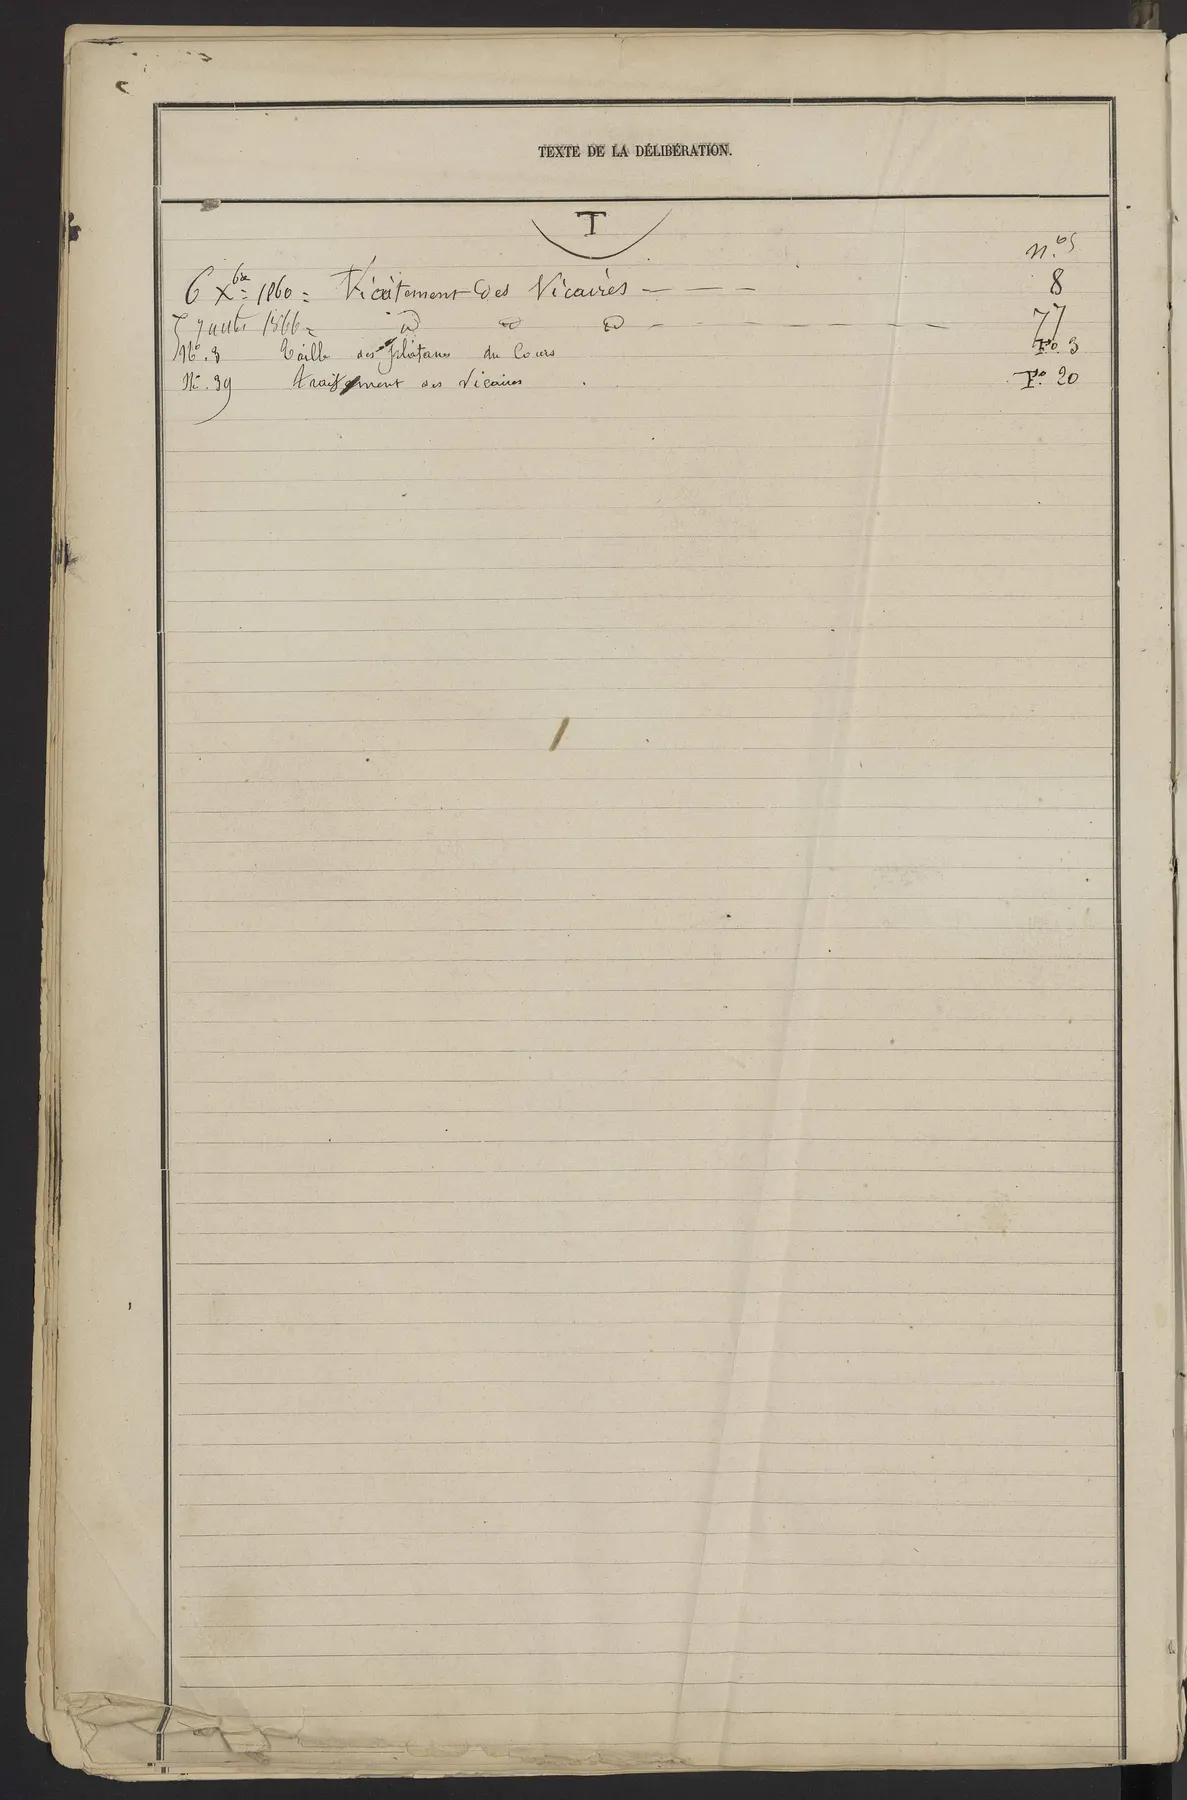 TEXTE DE LA DÉLIBÉRATION.
T
n.os
6 Xbre 1860 = Traitement des Vicaires — — — — 8
5 juillet 1866 = d° d° d° — — — — — — — — 77
No. 3 Taille des platanes du Cours Fo. 3
No. 39 traitement des Vicaires F°. 20